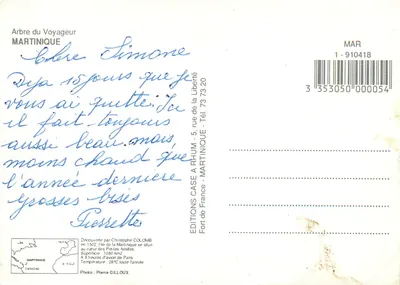 Arbre du Voyageur
MARTINIQUE
Chère Simone
Déja 15 jours que je
vous ai quitté. Ici
il fait toujours
aussi beau. mais
moins chaud que
l'année dernière
Grosses bises
Pierrette
MAR
1 - 910418
3 353050 000054
EDITIONS CASE A RHUM - 5, rue de la Liberté
Fort de France - MARTINIQUE - Tél. 73 73 20
MARTINIQUE
Découverte par Christophe COLOMB
en 1502, l'île de la Martinique se situe
au cœur des Petites Antilles.
Superficie : 1080 km2
A 8 heures d'avion de Paris
Température : 26°C toute l'année
Photo : Pierre